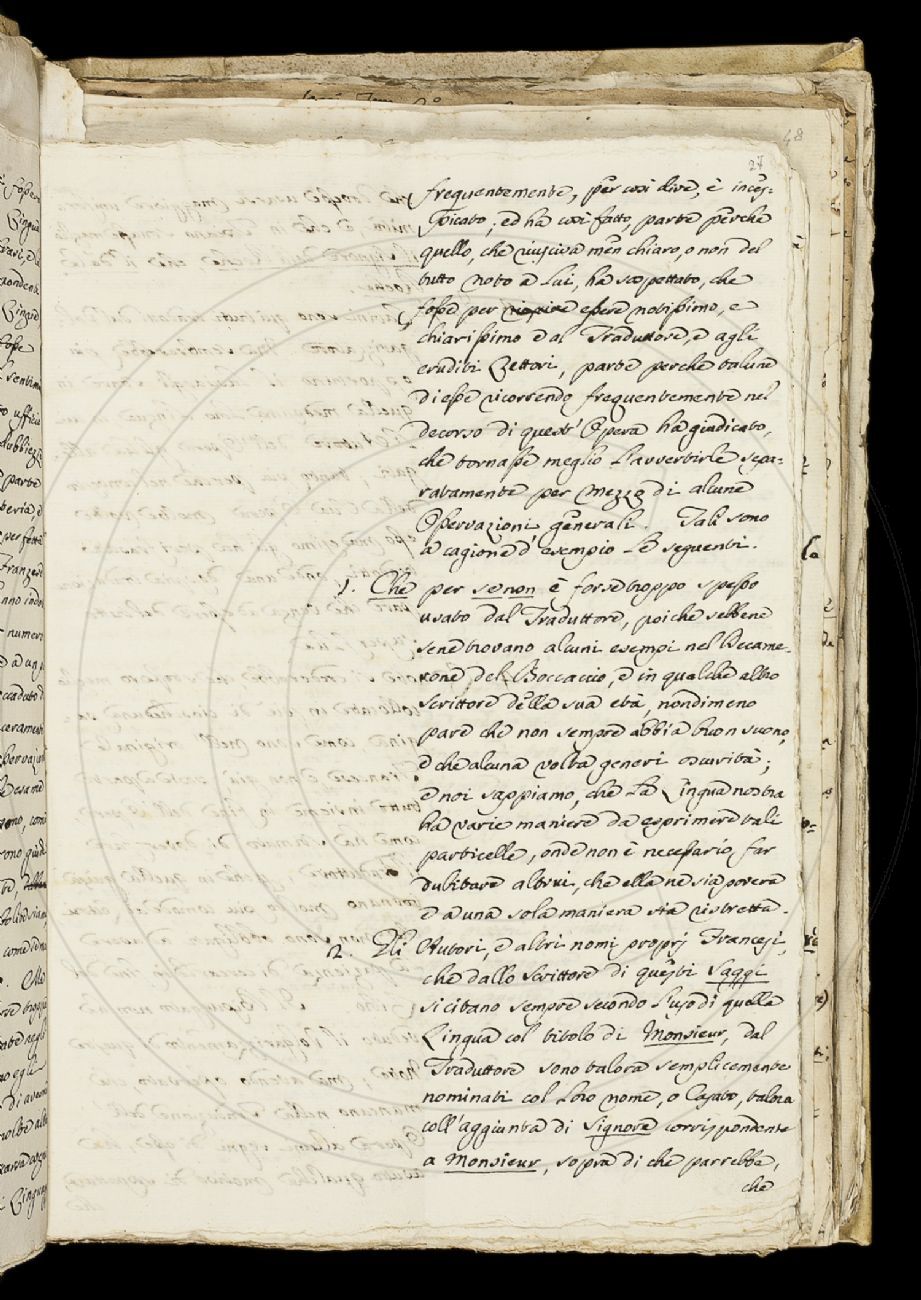 48
27
frequentemente, per così dire, è inces-
picato; ed ha così fatto, parte perche
quello, che riusciva men chiaro, o non del
tutto noto a Lui, ha sospettato, che
fosse per essere notissimo, e
chiarissimo e al Traduttore, e agli
eruditi Lettori, parte perche talune
di esse ricorrendo frequentemente nel
decorso di quest' Opera ha giudicato,
che tornasse meglio L'avvertirle sepa-
ratamente per mezzo di alcune
Osservazioni generali. Tali sono
a cagione d'esempio Le seguenti.
1. Che per se non è forse troppo spesso
usato dal Traduttore, poiche sebbene
se ne trovano alcuni esempi nel Decame-
rone del Boccaccio, e in qualche altro
Scrittore della sua età, nondimeno
pare che non sempre abbia buon suono,
e che alcuna volta generi oscurità;
e noi sappiamo, che La Lingua nostra
ha varie maniere da esprimere tali
particelle, onde non è necessario far
dubitare altrui, che ella ne sia povera
e a una sola maniera sia ristretta.
2. Gli Autori, e altri nomi proprj Francesi,
che dallo Scrittore di questi Saggi
si citano sempre secondo L'uso di quella
Lingua col titolo di Monsieur, dal
Traduttore sono talora semplicemente
nominati col Loro nome, o Casato, talora
coll'aggiunta di Signore corrispondente
a Monsieur, sopra di che parrebbe,
che